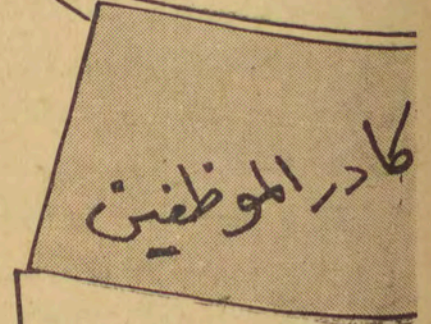 كادر الموظفين